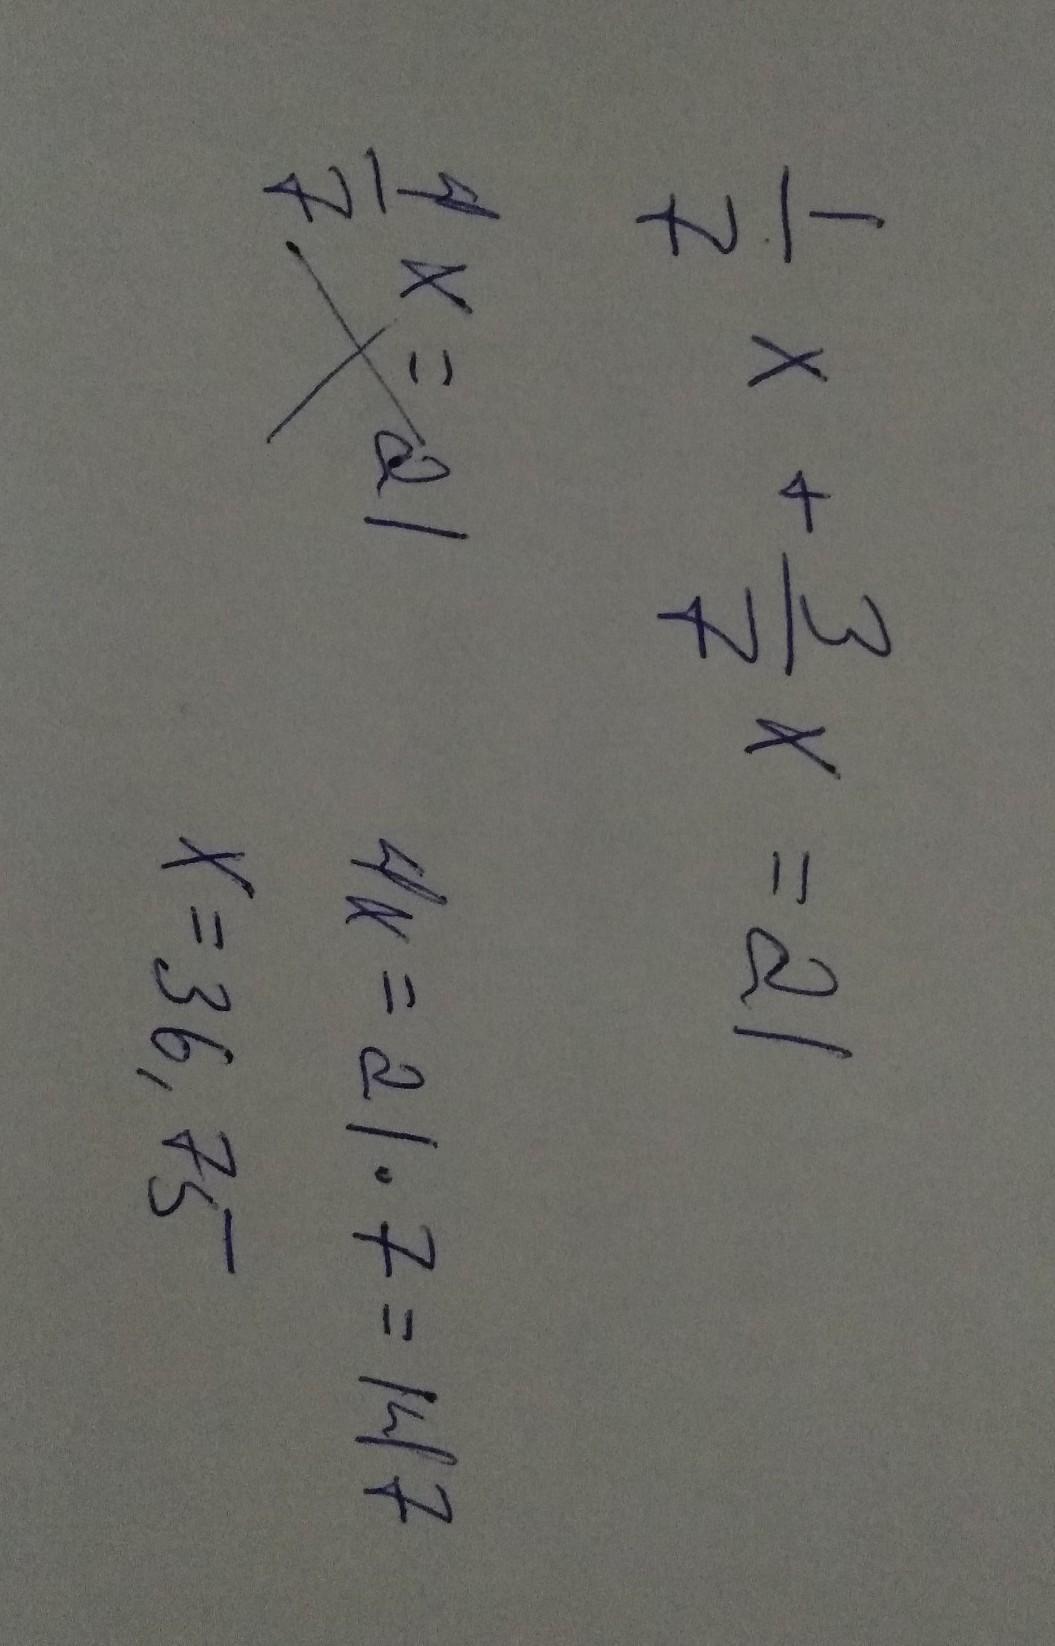 1/7 x + 3/7 x = 21
4/7 x = 21
4x = 21 · 7 = 147
x = 36,75